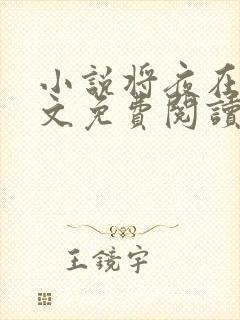 小說將夜在
文免費閱讀
王鏡宇